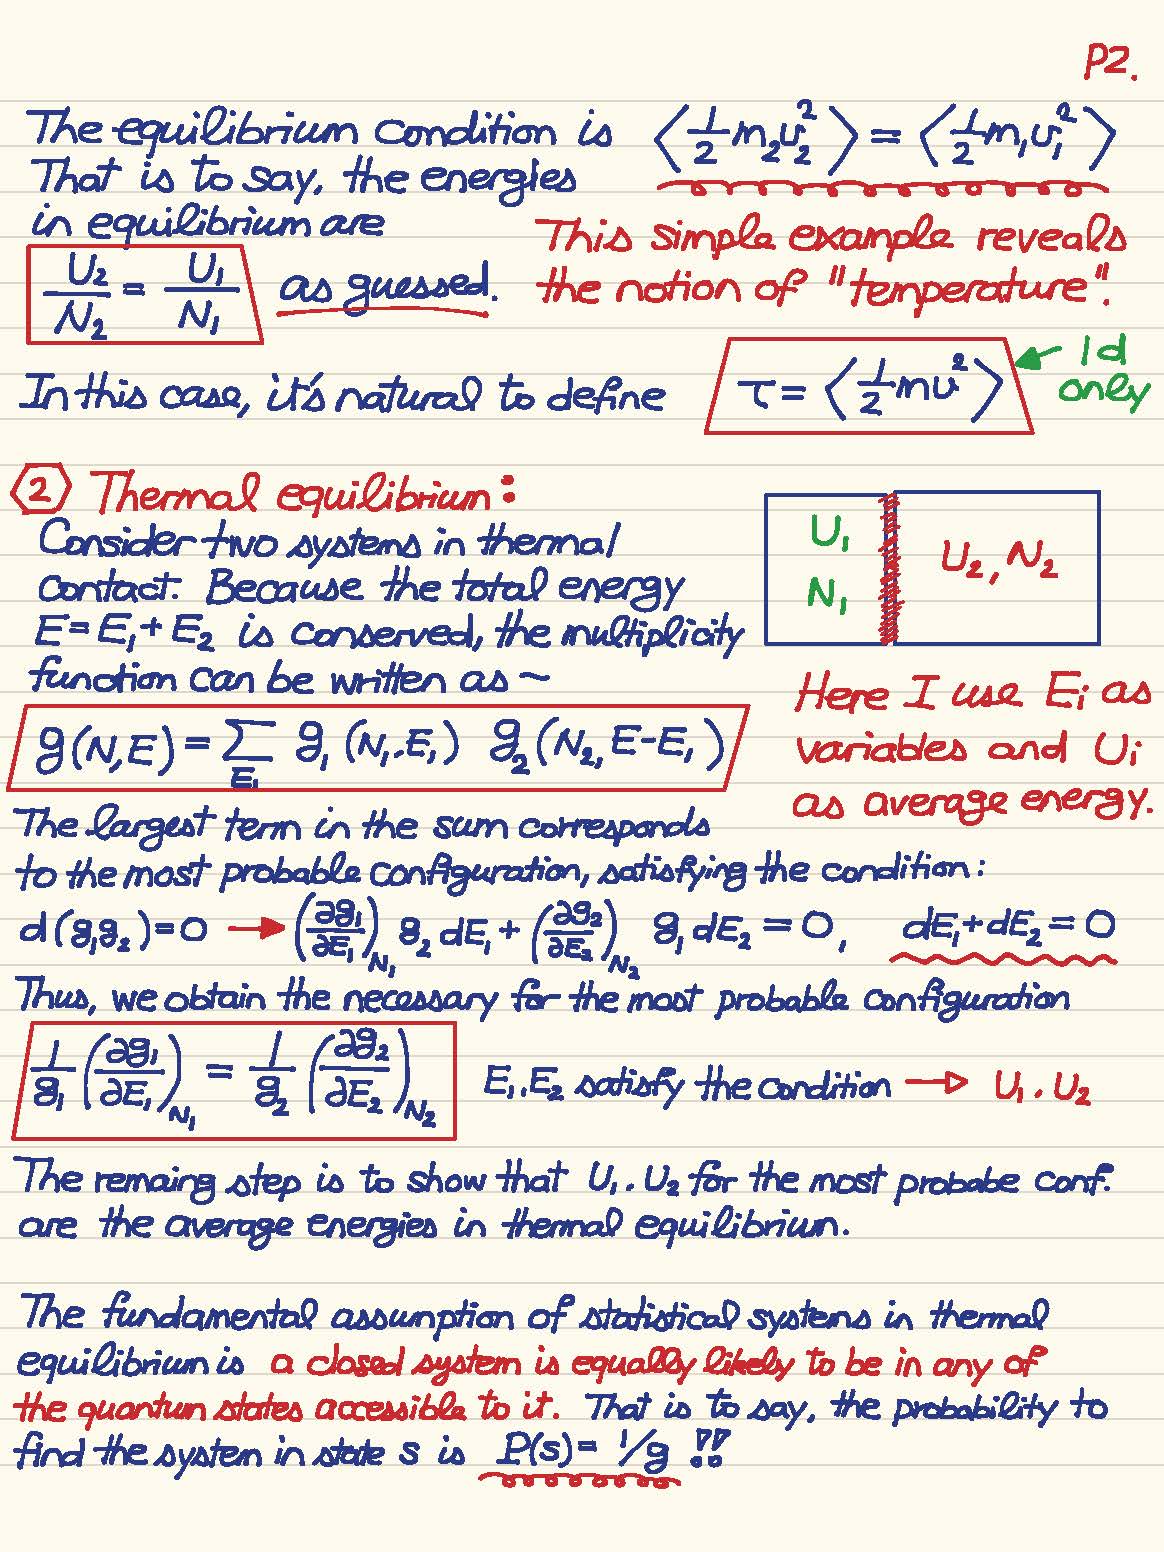 P2.
The equilibrium condition is ⟨1/2 m₂v₂²⟩ = ⟨1/2 m₁v₁²⟩
That is to say, the energies
in equilibrium are
U₂/N₂ = U₁/N₁ as guessed.
This simple example reveals
the notion of "temperature".
In this case, it's natural to define τ = ⟨1/2 mv²⟩
1d
only
2 Thermal equilibrium:
Consider two systems in thermal
contact. Because the total energy
E = E₁ + E₂ is conserved, the multiplicity
function can be written as ~
U₁
N₁
U₂, N₂
g(N,E) = Σ_E₁ g₁(N₁,E₁) g₂(N₂, E-E₁)
Here I use Eᵢ as
variables and Uᵢ
as average energy.
The largest term in the sum corresponds
to the most probable configuration, satisfying the condition:
d(g₁g₂) = 0 → (∂g₁/∂E₁)_N₁ g₂ dE₁ + (∂g₂/∂E₂)_N₂ g₁ dE₂ = 0, dE₁ + dE₂ = 0
Thus, we obtain the necessary for the most probable configuration
1/g₁ (∂g₁/∂E₁)_N₁ = 1/g₂ (∂g₂/∂E₂)_N₂ E₁.E₂ satisfy the condition → U₁.U₂
The remaing step is to show that U₁.U₂ for the most probabe conf.
are the average energies in thermal equilibrium.
The fundamental assumption of statistical systems in thermal
equilibrium is a closed system is equally likely to be in any of
the quantum states accessible to it. That is to say, the probability to
find the system in state s is P(s) = 1/g !!